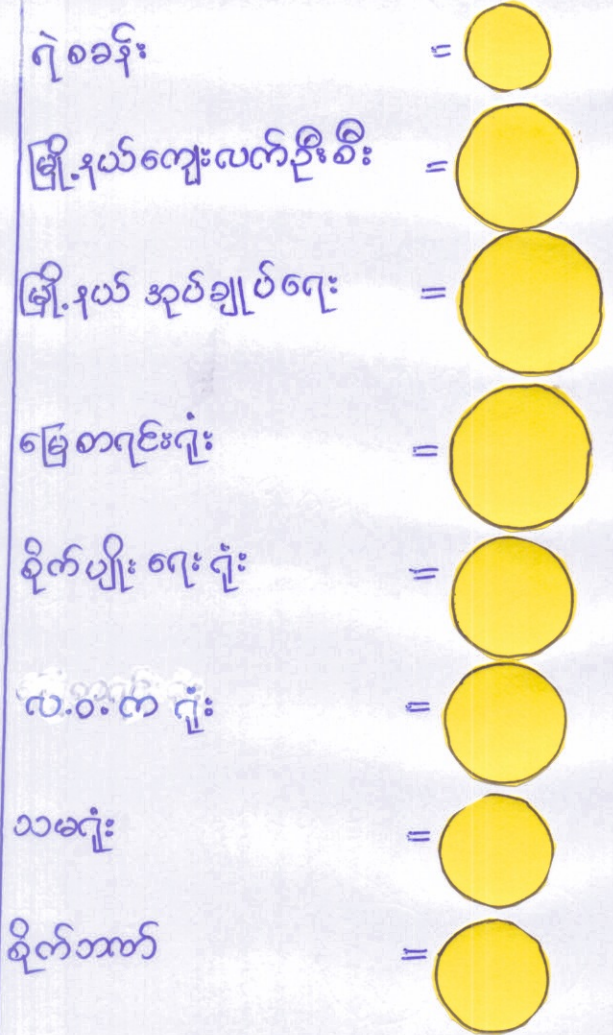 ရဲစခန်း =
မြို့နယ်ကျေးလက်ဦးစီး =
မြို့နယ် အုပ်ချုပ်ရေး =
မြေစာရင်းရုံး =
စိုက်ပျိုးရေးရုံး =
လ.ဝ.က ရုံး =
သမရုံး =
စိုက်ဘဏ် =